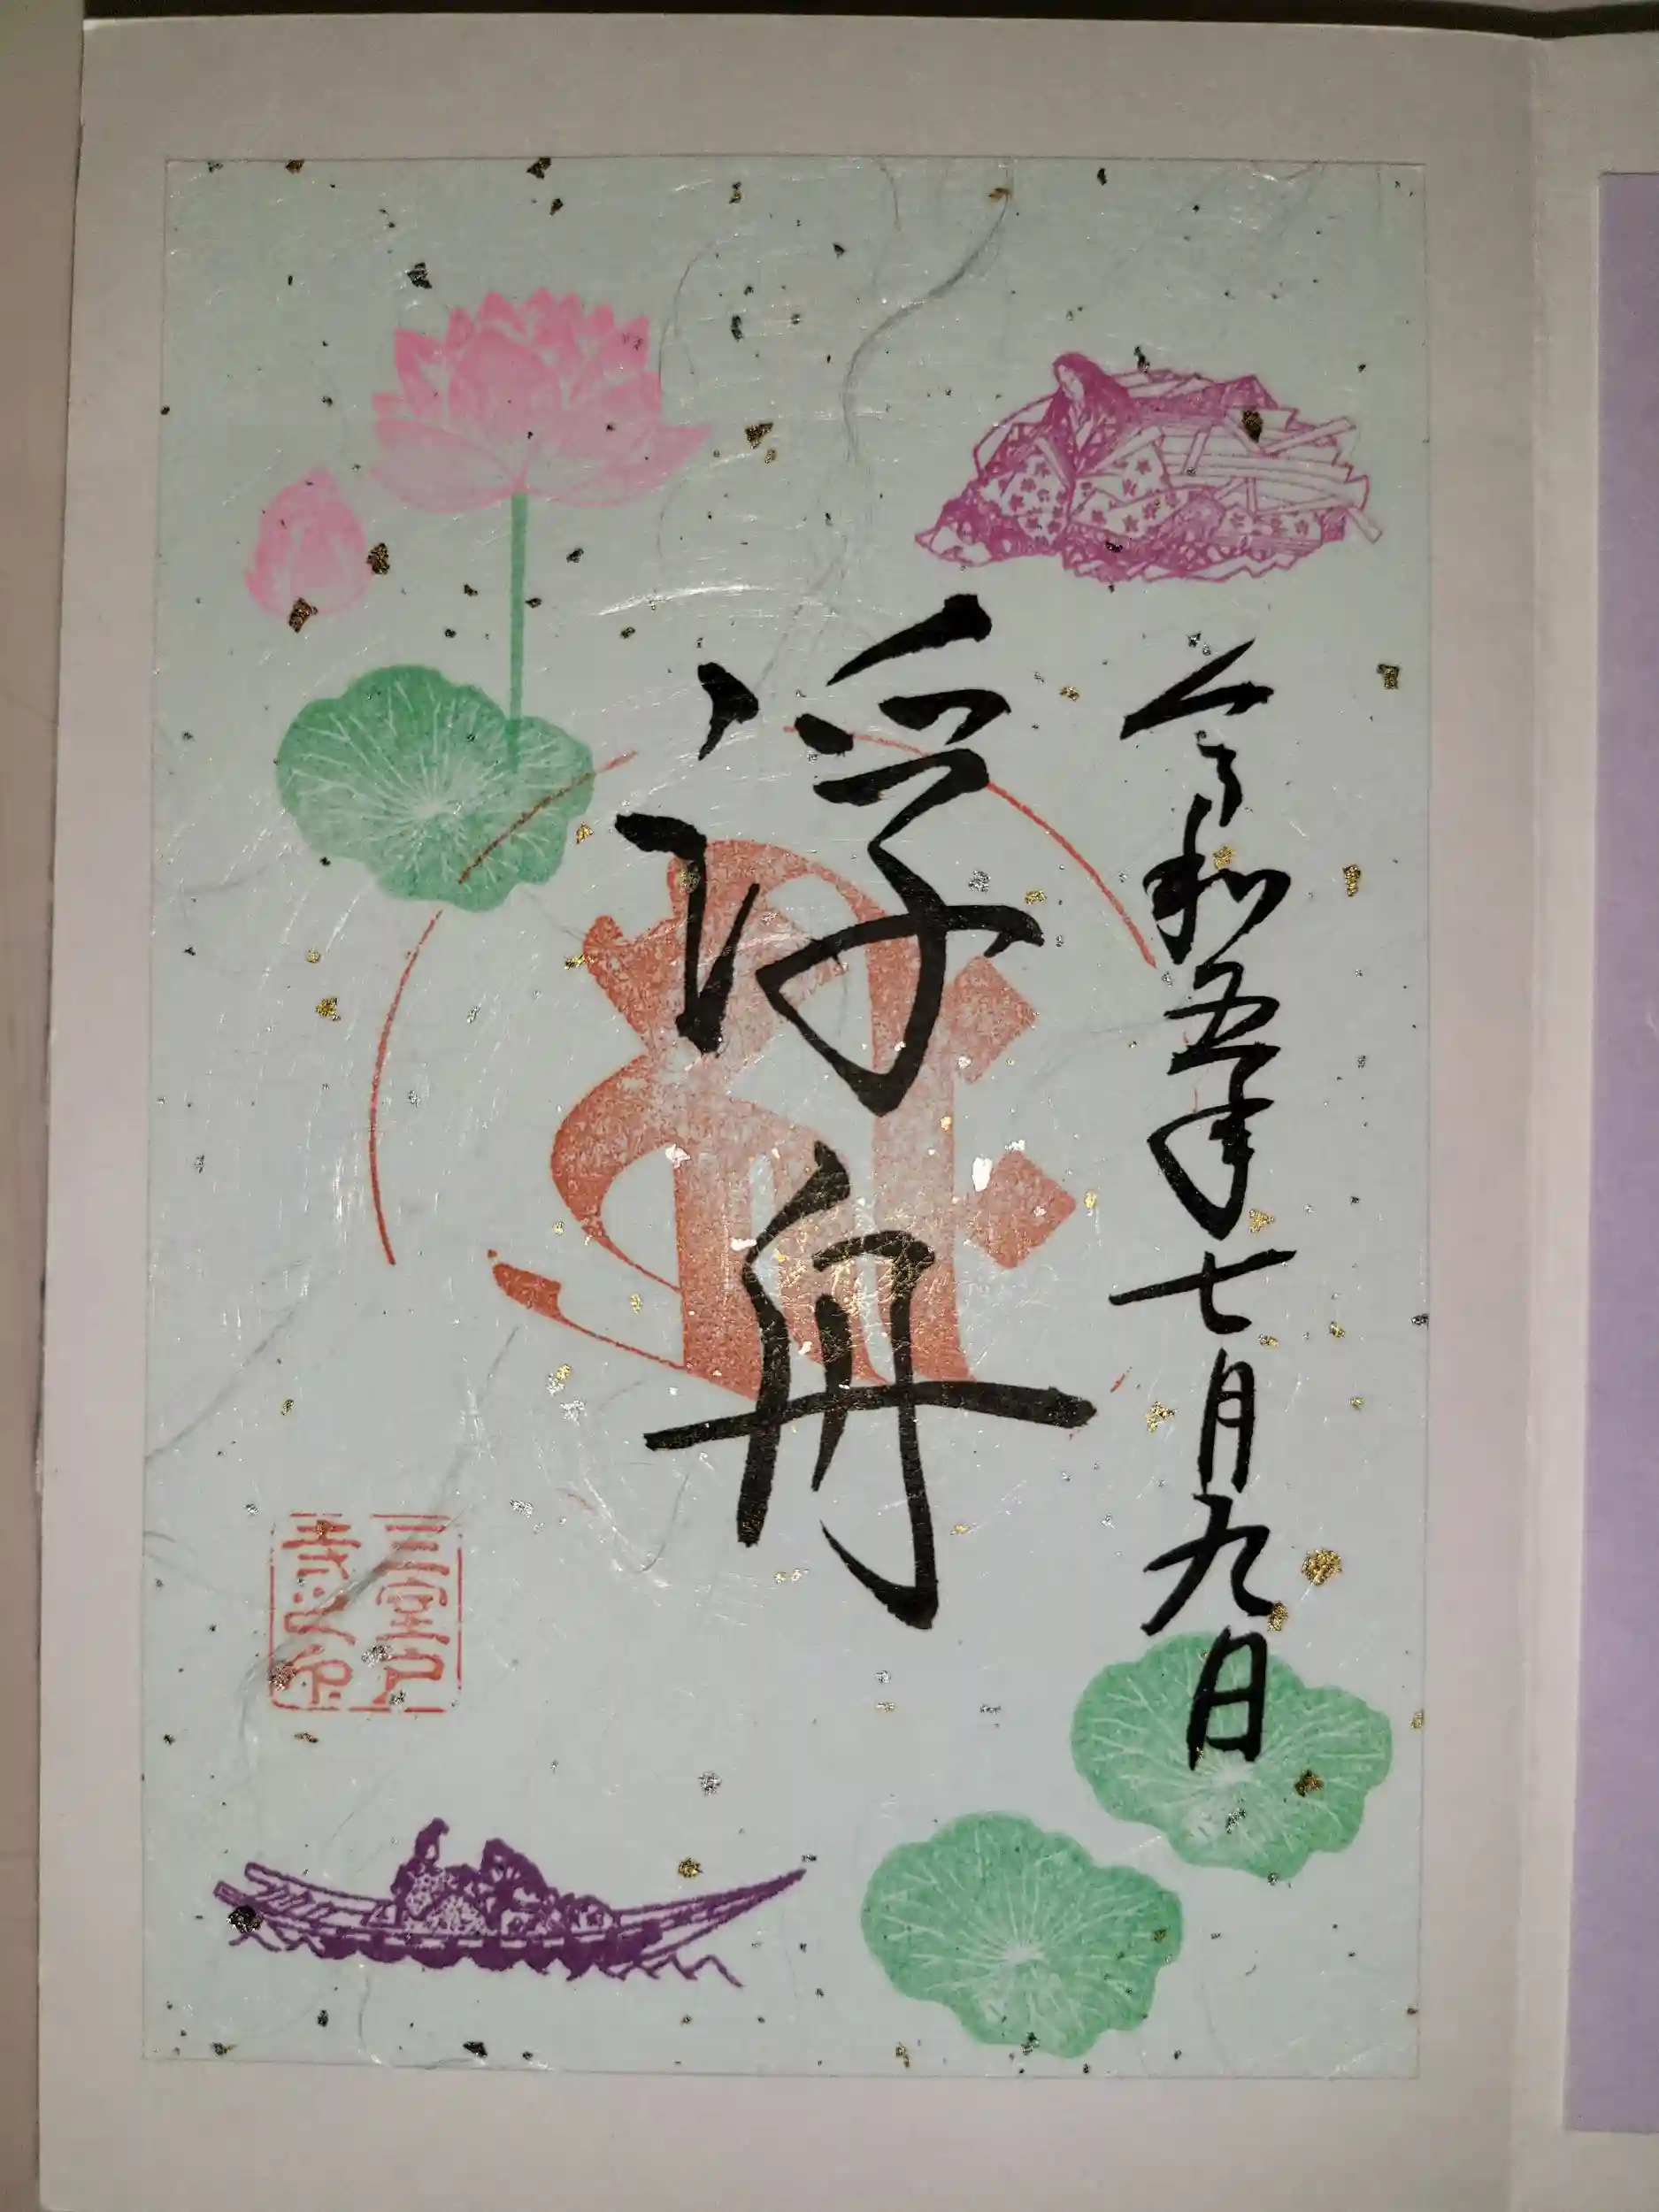 令和五年七月九日
浮舟
三室戸
寺之印